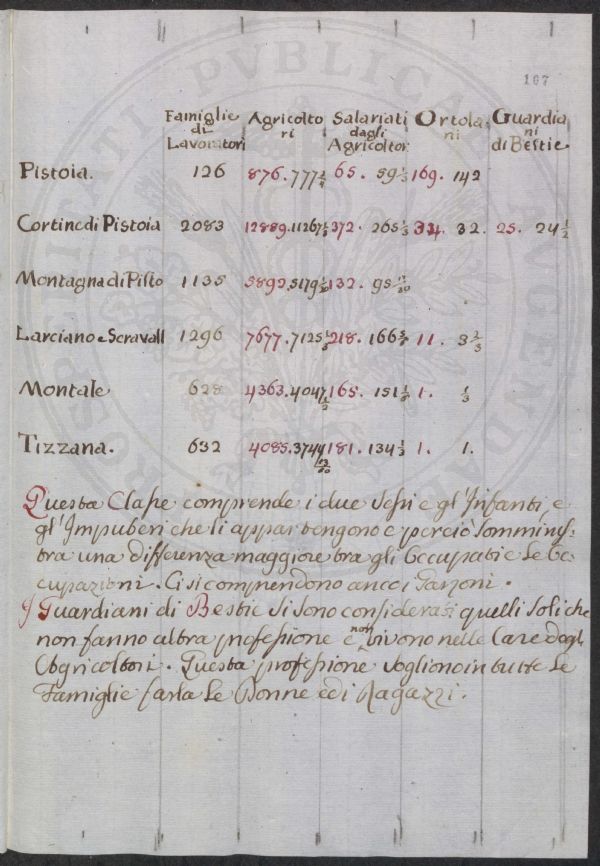 167
Famiglie di Lavoratori Agricoltori Salariati dagli Agricoltori Ortolani Guardiani di Bestie
Pistoia. 126 876. 777 65. 59 169. 142
Cortine di Pistoia 2083 12889. 11267 372. 265 34. 32. 25. 24 1/2
Montagna di Pisto 1135 5892. 5179 132. 95
Larciano e Seravall 1296 7677. 7125 218. 166 11. 3 2/3
Montale 628 4363. 4047 165. 151 1. 1/3
Tizzana. 632 4085. 3744 181. 134 1/3 1. 1.
Questa Classe comprende i due Sessi e gl'Infanti, e
gl'Impuberi che li appartengono e perciò somminis-
tra una differenza maggiore tra gli Occupati e le Oc-
cupazioni. Ci si comprendono anco i Garzoni.
I Guardiani di Bestie si sono considerati quelli soli che
non fanno altra professione e non vivono nelle Case degli
Agricoltori. Questa professione sogliono in tutte le
Famiglie farla le Donne ed i Ragazzi.